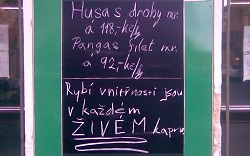 Husa s droby mr.
á 118,-kč/kg
Pangas filet mr.
á 92,-kč/kg
Rybí vnitřnosti jsou
v každém
ŽIVÉM kapru